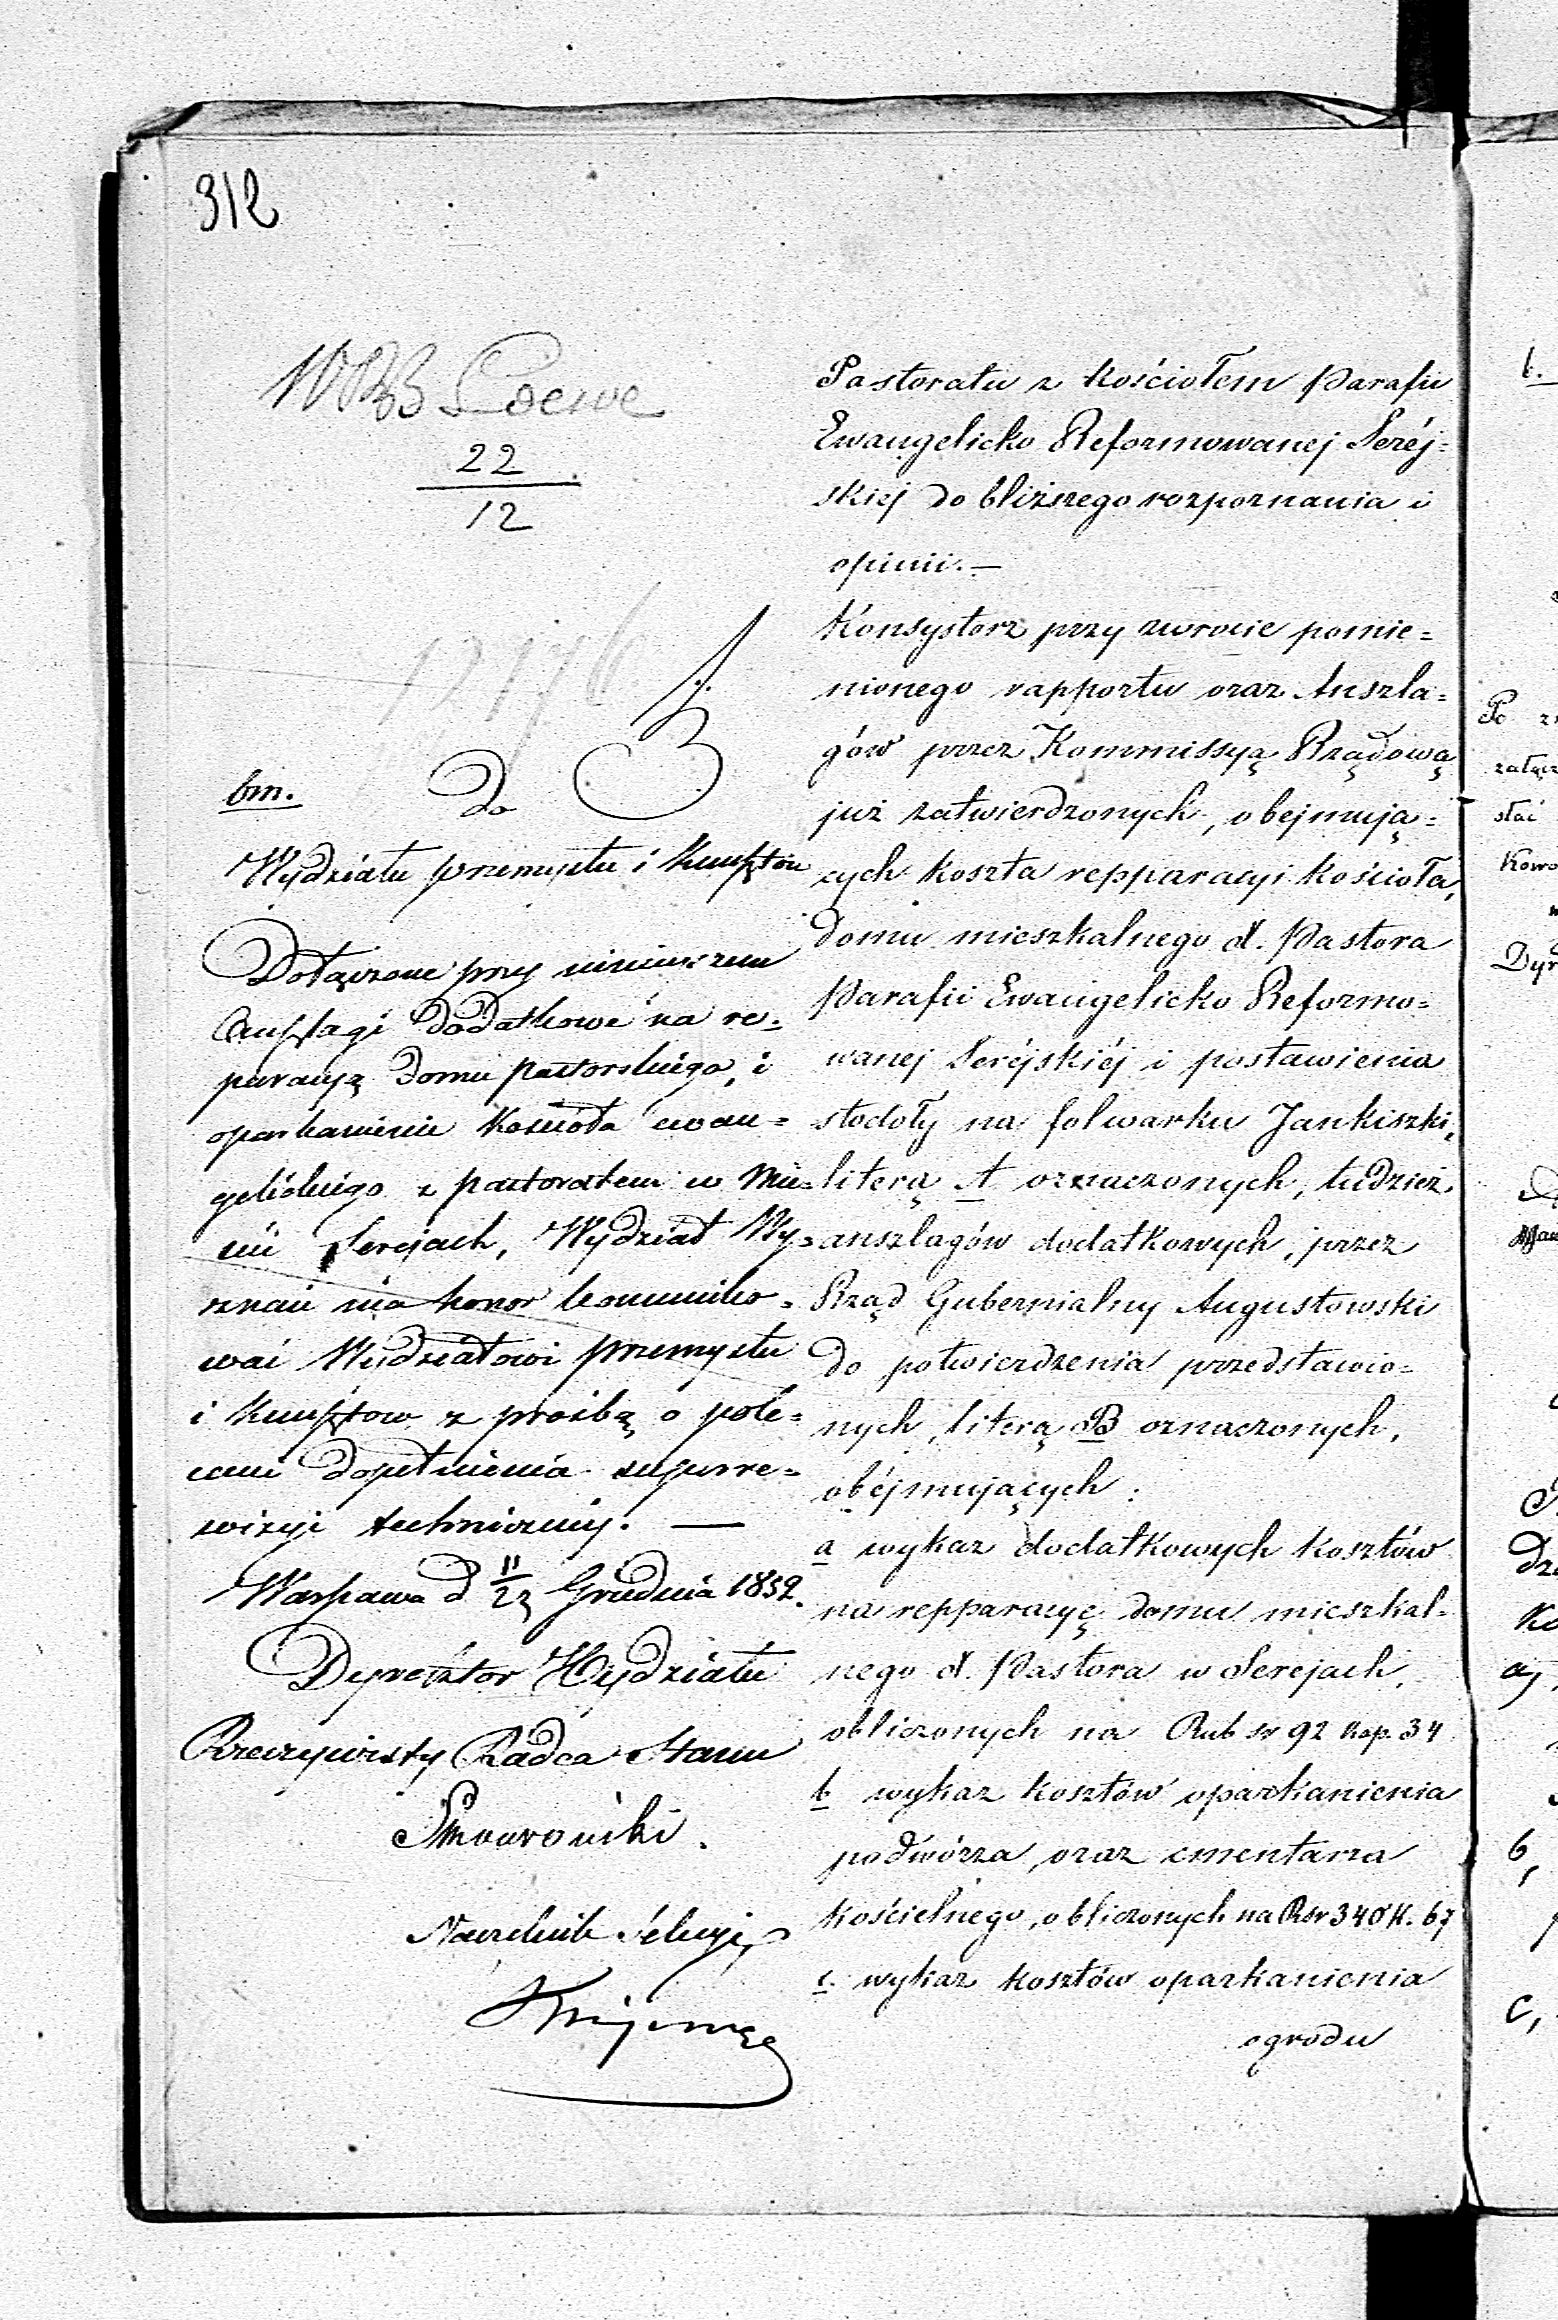 312
Loewe
22
12
12176
bm.
Do
Wydziału przemysłu i Kunsztów
Dołączone przy niniejszem
Anszlagi dodatkowe na re=
paracyą domu pastorskiego, i
oparkanienie Kościoła ewan=
gelickiego z pastoratem w Mie=
ście Serejach, Wydział Wy=
znań ma honor kommuniko=
wać Wydziałowi przemysłu
i Kunsztow z prośbą o pole=
cenie dopełnienia superre=
wizyi technicznéj. —
Warszawa d 11/23 Grudnia 1852.
Dyrektor Wydziału
Rzeczywisty Radca Stanu
Naczelnik Sekcyi
Pastoratu z kościołem Parafii
Ewangelicko Reformowanej Seréj=
skiéj do bliższego rozpoznania i
opinii. —
Konsystorz przy zwrocie pomie=
nionego rapportu oraz Anszla=
gów przez Kommissyą Rządową
już zatwierdzonych, obejmują=
cych koszta repparacyi kościoła,
domu mieszkalnego d. Pastora
Parafii Ewangelicko Reformo=
wanej Seréjskiéj i postawienia
stodoły na folwarku Jankiszki,
literą A oznaczonych, tudzież
anszlagów dodatkowych, przez
Rząd Gubernialny Augustowski
do potwierdzenia przedstawio=
nych, literą B oznaczonych,
obéjmujących:
a wykaz dodatkowych kosztów
na repparacyę domu mieszkal=
nego d. Pastora w Serejach,
obliczonych na Rub sr 92 kop. 34
b wykaz kosztów oparkanienia
podwórza, oraz cmentarza
kościelnego, obliczonych na Rsr 340 K. 67
c. wykaz kosztów oparkanienia
ogrodu
b.
Po
załącz
słać
Kowo
Dyr
b,
c,